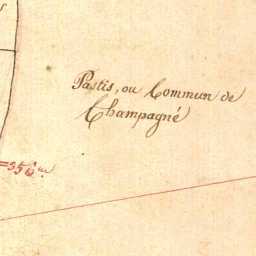 Pastis, ou Commun de
Champagné